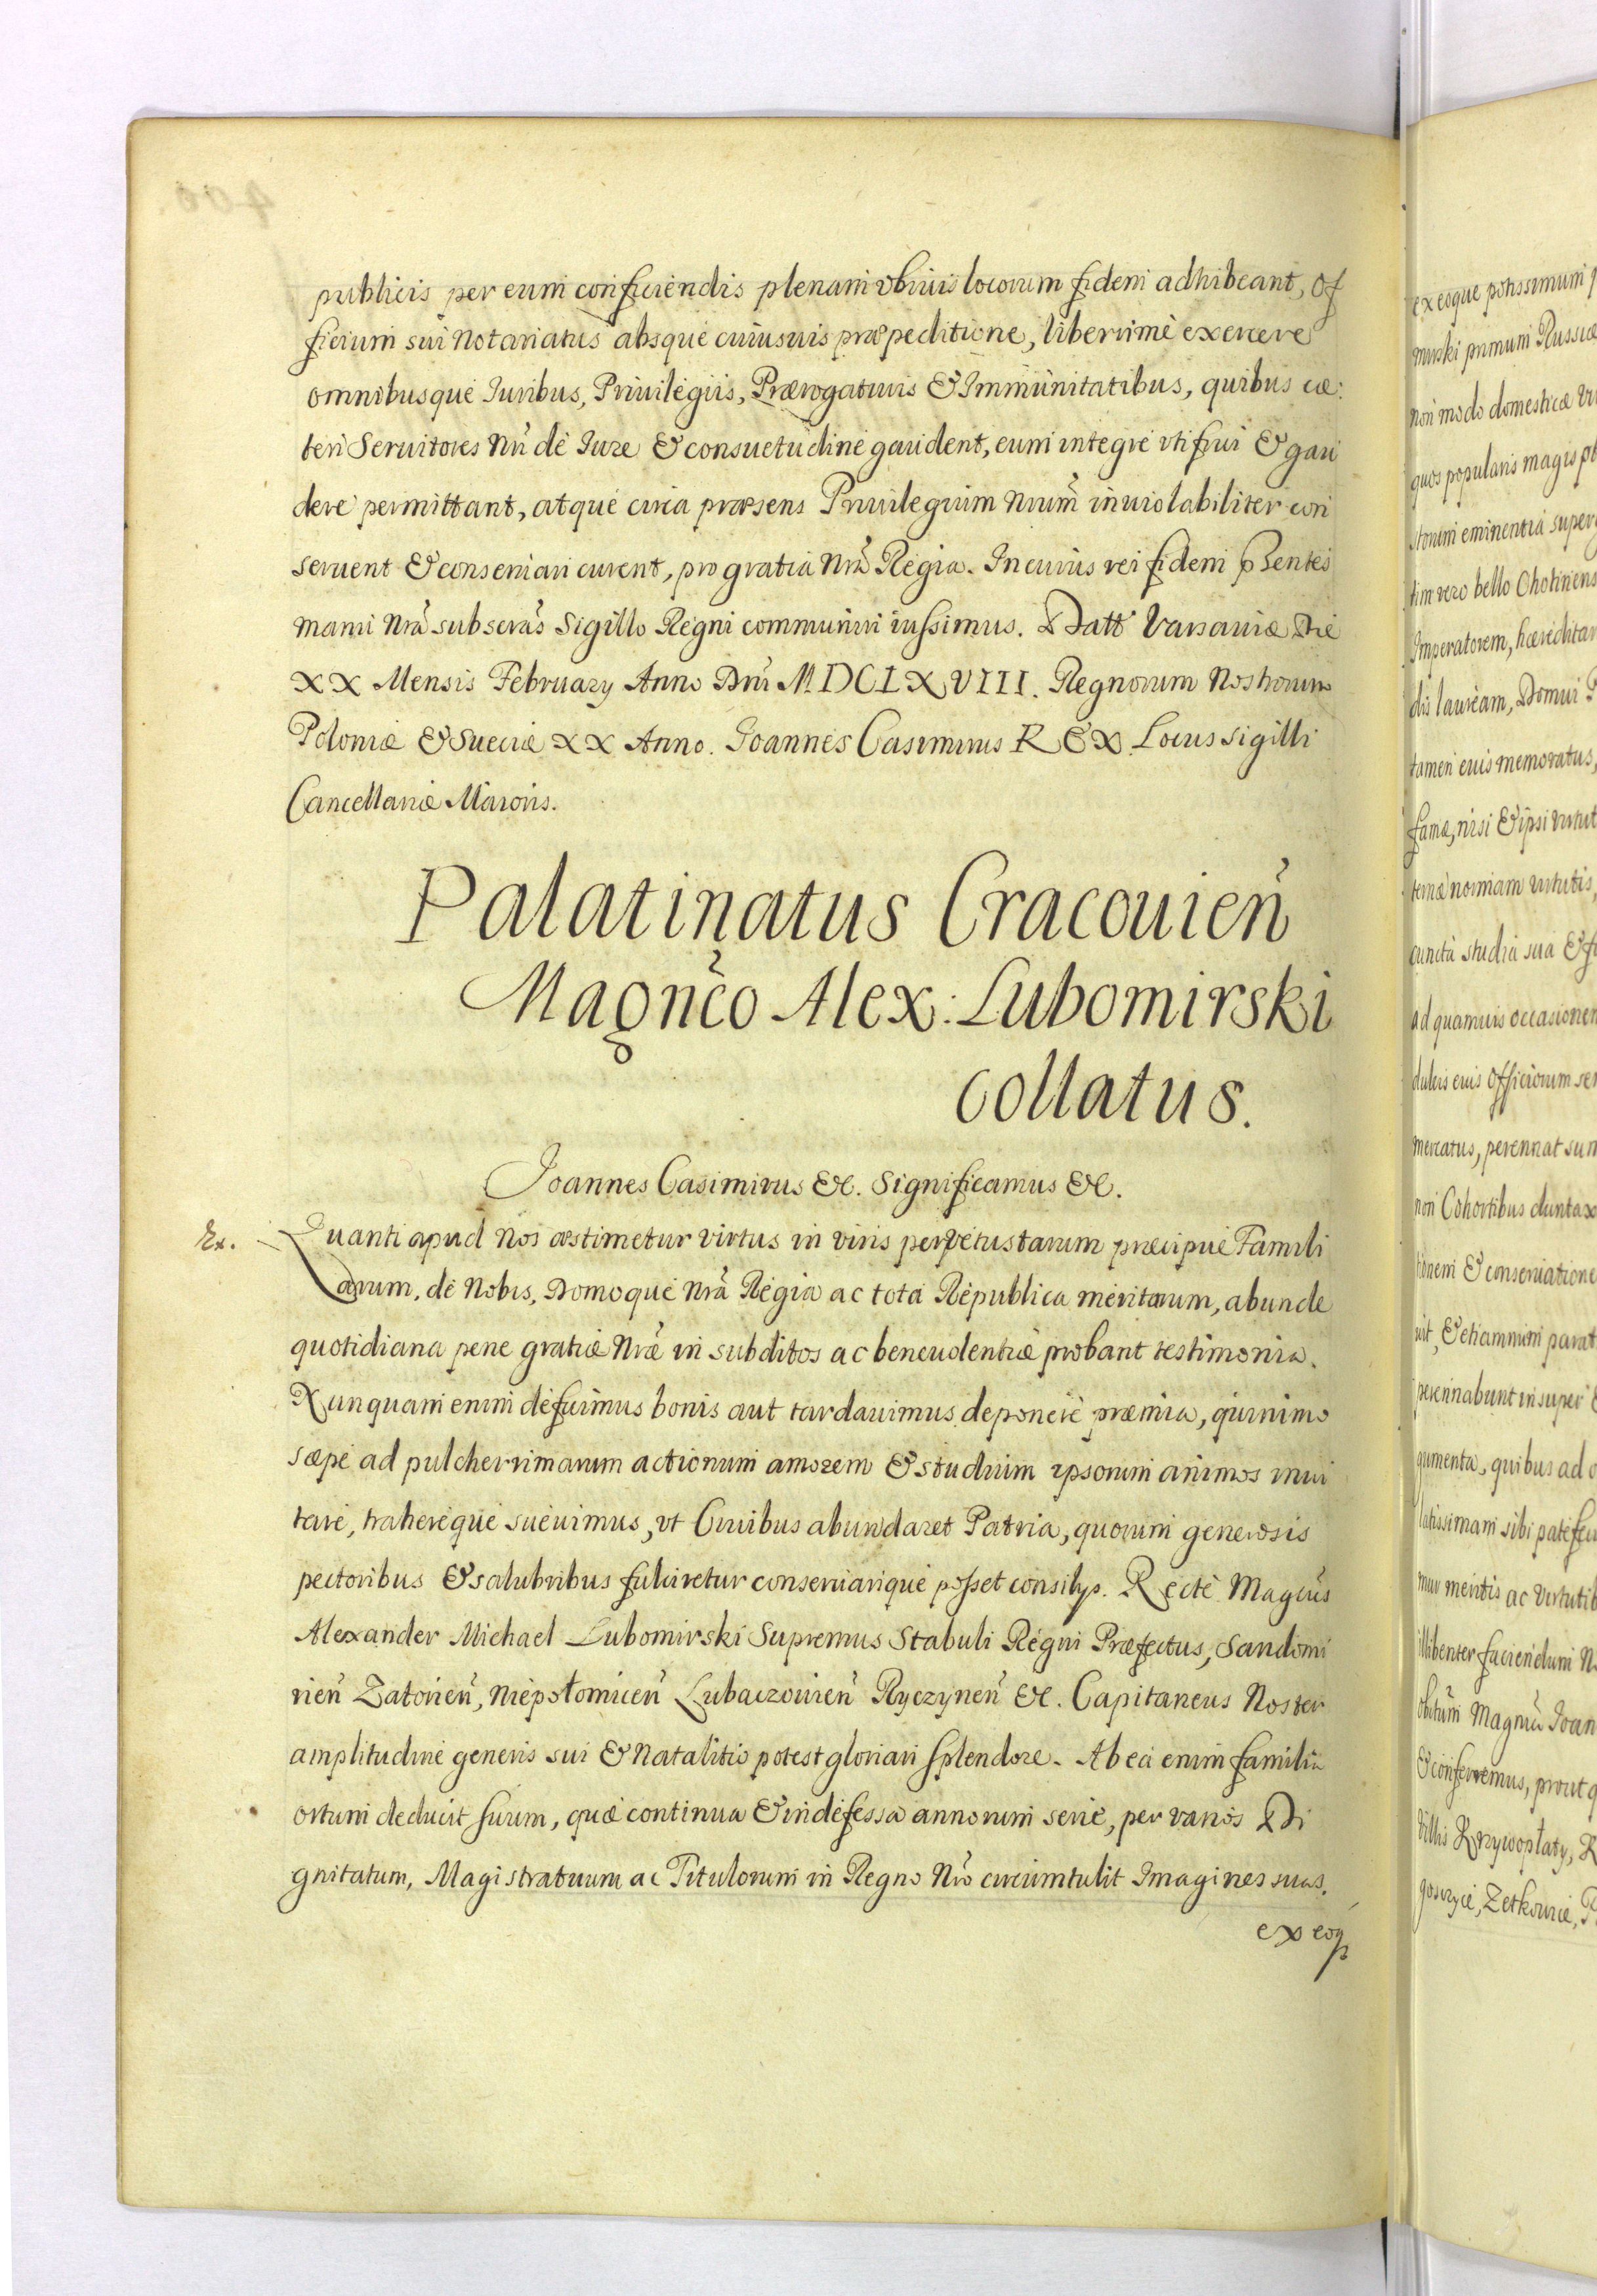 publicis per eum conficiendis plenam vbiuis locorum fidem adhibeant, Of
ficium sui Notariatus absque cuiusuis præpeditione, liberrimè exercere
omnibusque Iuribus, Priuilegiis, Prærogatiuis & Immunitatibus, quibus cæ:
teri Seruitores Nri de Iure & consuetudine gaudent, eum integre vti frui & gau
dere permittant, atque circa præsens Priuilegium Nrum inuiolabiliter con
seruent & conseruari curent, pro gratia Nrã Regia. In cuius rei fidem pñtes
manu Nrã subscrãs Sigillo Regni communiri iussimus. Datt Varsauiæ Die
XX Mensis February Anno Dni MDCLXVIII. Regnorum Nostrorum
Poloniæ & Sueciæ XX Anno. Joannes Casimirus REX. Locus sigilli
Cancellariæ Maioris.
Palatinatus Cracouień
Magnĉo Alex: Lubomirski
collatus.
Joannes Casimirus &c. Significamus &c.
Ex.
Quanti apud Nos æstimetur virtus in viris pervetustarum præcipue Famili
arum, de Nobis, Domoque Nrã Regia ac tota Republica meritorum, abunde
quotidiana pene gratiæ Nræ in subditos ac beneuolentiæ probant testimonia.
Nunquam enim defuimus bonis aut tardauimus deponere præmia, quinimo
sæpe ad pulcherrimarum actionum amorem & studium ipsorum animos inui
tare, trahereque sueuimus, vt Ciuibus abundaret Patria, quorum generosis
pectoribus & salubribus fulciretur conseruarique posset consilys. Recte Magcus
Alexander Michael Lubomirski Supremus Stabuli Regni Præfectus, Sandomi
rień Zatorień, Niepołomicień Lubaczouień Ryczyneń &c. Capitaneus Noster
amplitudine generis sui & Natalitio potest gloriari splendore. Ab ea enim familia
ortum deducit suum, quæ continua & indefessa annorum serie, per varios Di
gnitatum, Magistratuum ac Titulorum in Regno Nrõ circumtulit Imagines suas.
ex eoq
exeoque potissimum
mirski primum Russiæ
non modo domesticæ
quos popularis magis
eminentia super
tim vero bello Chotinens
Imperatorem, hæreditar
dis lauream, Domui
tamen eius memoratus,
famæ, nisi & ipsi virtut
ternæ normam virtutis,
cuncta studia sua &
ad quamuis occasionem
eius Officiorum
mercatus, perennat
non Cohortibus duntax
tionem & conseruatione
uit, & etiamnum parat
perennabunt insuper
gumenta, quibus ad
latissimam sibi patefec
mur meritis ac virtutib
illibenter faciendum
obitum Magnici Joan
& conferremus, prout
Villis Krzywopłaty,
goszcyce, Zetkowice,